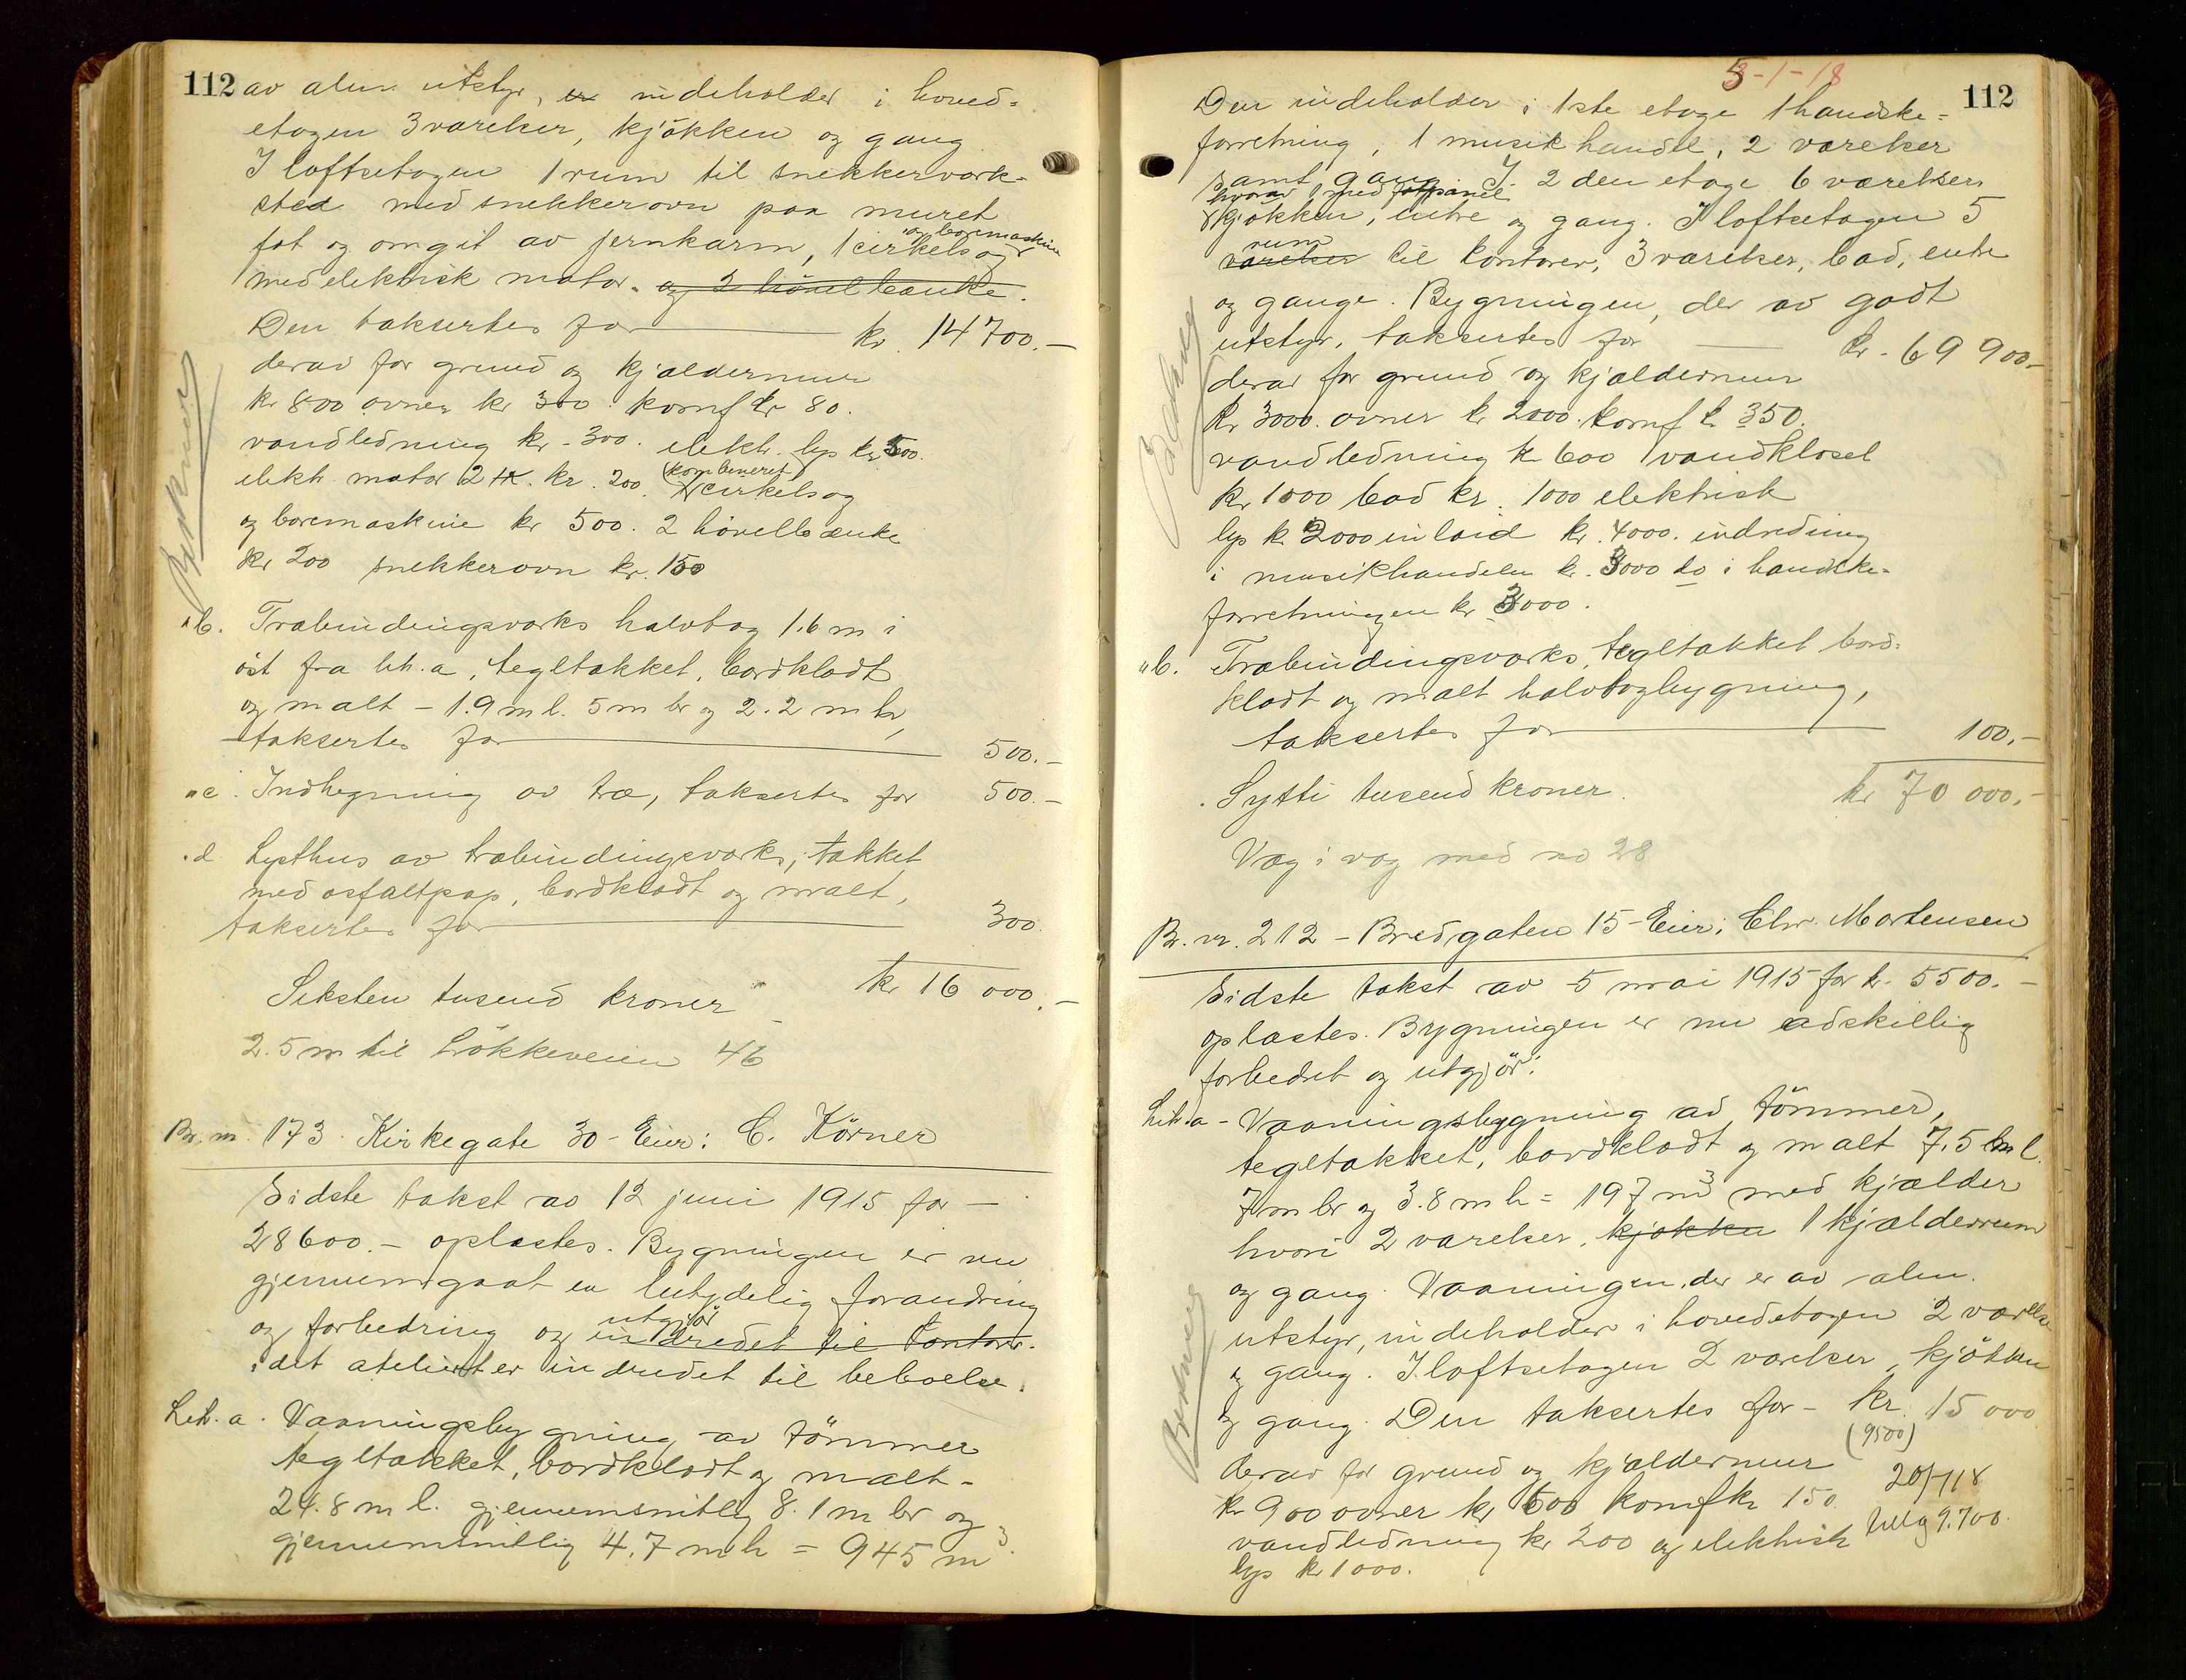 112
av alm. utstyr, er indeholder i hoved=
etagen 3 værelser, kjøkken og gang
I loftsetagen 1 rum til snekkerverk-
sted med snekkerovn paa muret
fot og omgit av jernkarm, 1 cirkelsag
og boremaskine
med elektrisk motor. og 2 høvelbænke.
Den taksertes for kr. 14700.-
derav for grund og kjældermur
kr 800 ovner kr 300. komf kr 80.
vandledning kr. 300. elektr. lys kr 500.
elektr. motor 2 HK. kr. 200. kombineret
cirkelsag
og boremaskine kr 500. 2 høvelbænke
kr 200 snekkerovn kr. 150
"b. Træbindingsverks halvtag 1.6 m i
øst fra lit. a, tegltækket, bordklædt
og malt - 1.9 m l. 5 m br og 2.2 m h,
taksertes for 500.-
"c. Indhegning av træ, taksertes for 500.-
"d Lysthus av træbindingsverks, tækket
med asfaltpap, bordklædt og malt,
taksertes for 300.
Seksten tusend kroner kr 16 000.-
2.5 m til Løkkeveien 46
Br. nr. 173. Kirkegate 30 - Eier: C. Körner
Sidste takst av 12 juni 1915 for -
28600.- oplæstes. Bygningen er nu
gjennemgaat en betydelig forandring
og forbedring og utgjør indredet til kontorer.
idet atelieret er indredet til beboelse.
Lit. a. Vaaningsbygning av tømmer
tegltækket, bordklædt og malt -
24.8 m l. gjennemsnitlig 8.1 m br og
gjennemsnitlig 4.7 m h = 945 m³.
5-1-18
112
Den indeholder i 1ste etage 1 handske=
forretning, 1 musikhandel, 2 værelser
samt gang. I 2den etage 6 værelser
hvorav 1 med
kjøkken, entre og gang. I loftsetagen 5
rum
værelser til kontorer, 3 værelser, bad, entre
og gange. Bygningen, der av godt
utstyr, taksertes for kr. 69 900.-
derav for grund og kjældermur
kr 3000. ovner kr 2000. komf kr 350.
vandledning kr 600 1 vandkloset
kr 1000 bad kr. 1000 elektrisk
lys kr 2000 in laid kr. 4000. indredning
i musikhandelen kr. 3000 do i handske-
forretningen kr 3000.
"b. Træbindingsverks, tegltækket bord-
klædt og malt halvtagbygning,
taksertes for 100.-
Sytti tusend kroner. kr 70 000.-
Væg i væg med no 28
Br. nr. 212 - Bredgaten 15 - Eier: Chr. Mortensen
Sidste takst av 5 mai 1915 for kr. 5500.-
oplæstes. Bygningen er nu adskillig
forbedret og utgjør:
Lit. a - Vaaningsbygning av tømmer,
tegltækket, bordklædt og malt 7.5 m l.
7 m br og 3.8 m h = 197 m³ med kjælder
hvori 2 værelser, kjøkken 1 kjælderrum
og gang. Vaaningen, der er av alm.
utstyr, indeholder i hovedetagen 2 værelser
og gang. I loftsetagen 2 værelser, kjøkken
og gang. Den taksertes for - kr. 15 000
(9500)
derav for grund og kjældermur
kr 900 ovner kr 600 komf kr 150.
20/-118
vandledning kr 200 og elektrisk
9.700.
lys kr 1000.